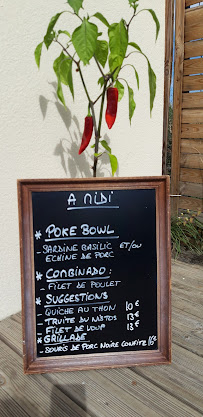 A NIDI
* POKE BOWL
- SARDINE BASILIC ET/OU
ECHINE DE PORC
* COMBINADO :
- FILET DE POULET
* SUGGESTIONS
- QUICHE AU THON 10€
- TRUITE DU 13€
- FILET DE LOUP 13€
* GRILLADE
- SOURIS DE PORC NOIRE CONFITE